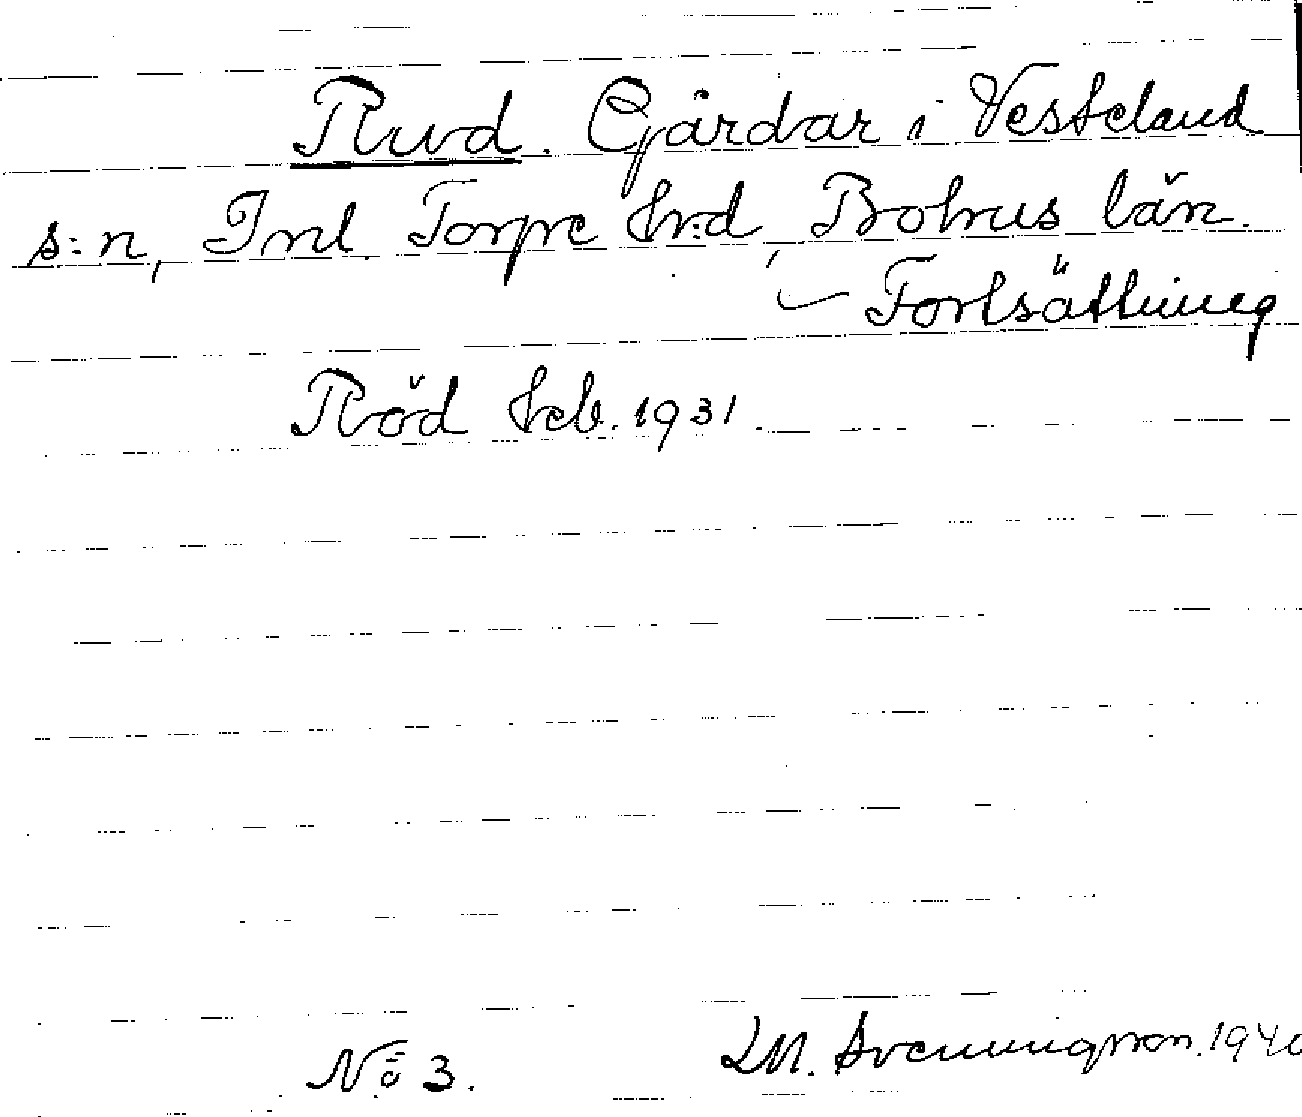 Rud. Gårdar i Vesteland
s:n, Inl. Torpe hrd, Bohus län.
— Fortsättning
Röd Jeb. 1931.
No 3.
M. Svenningsson. 1940